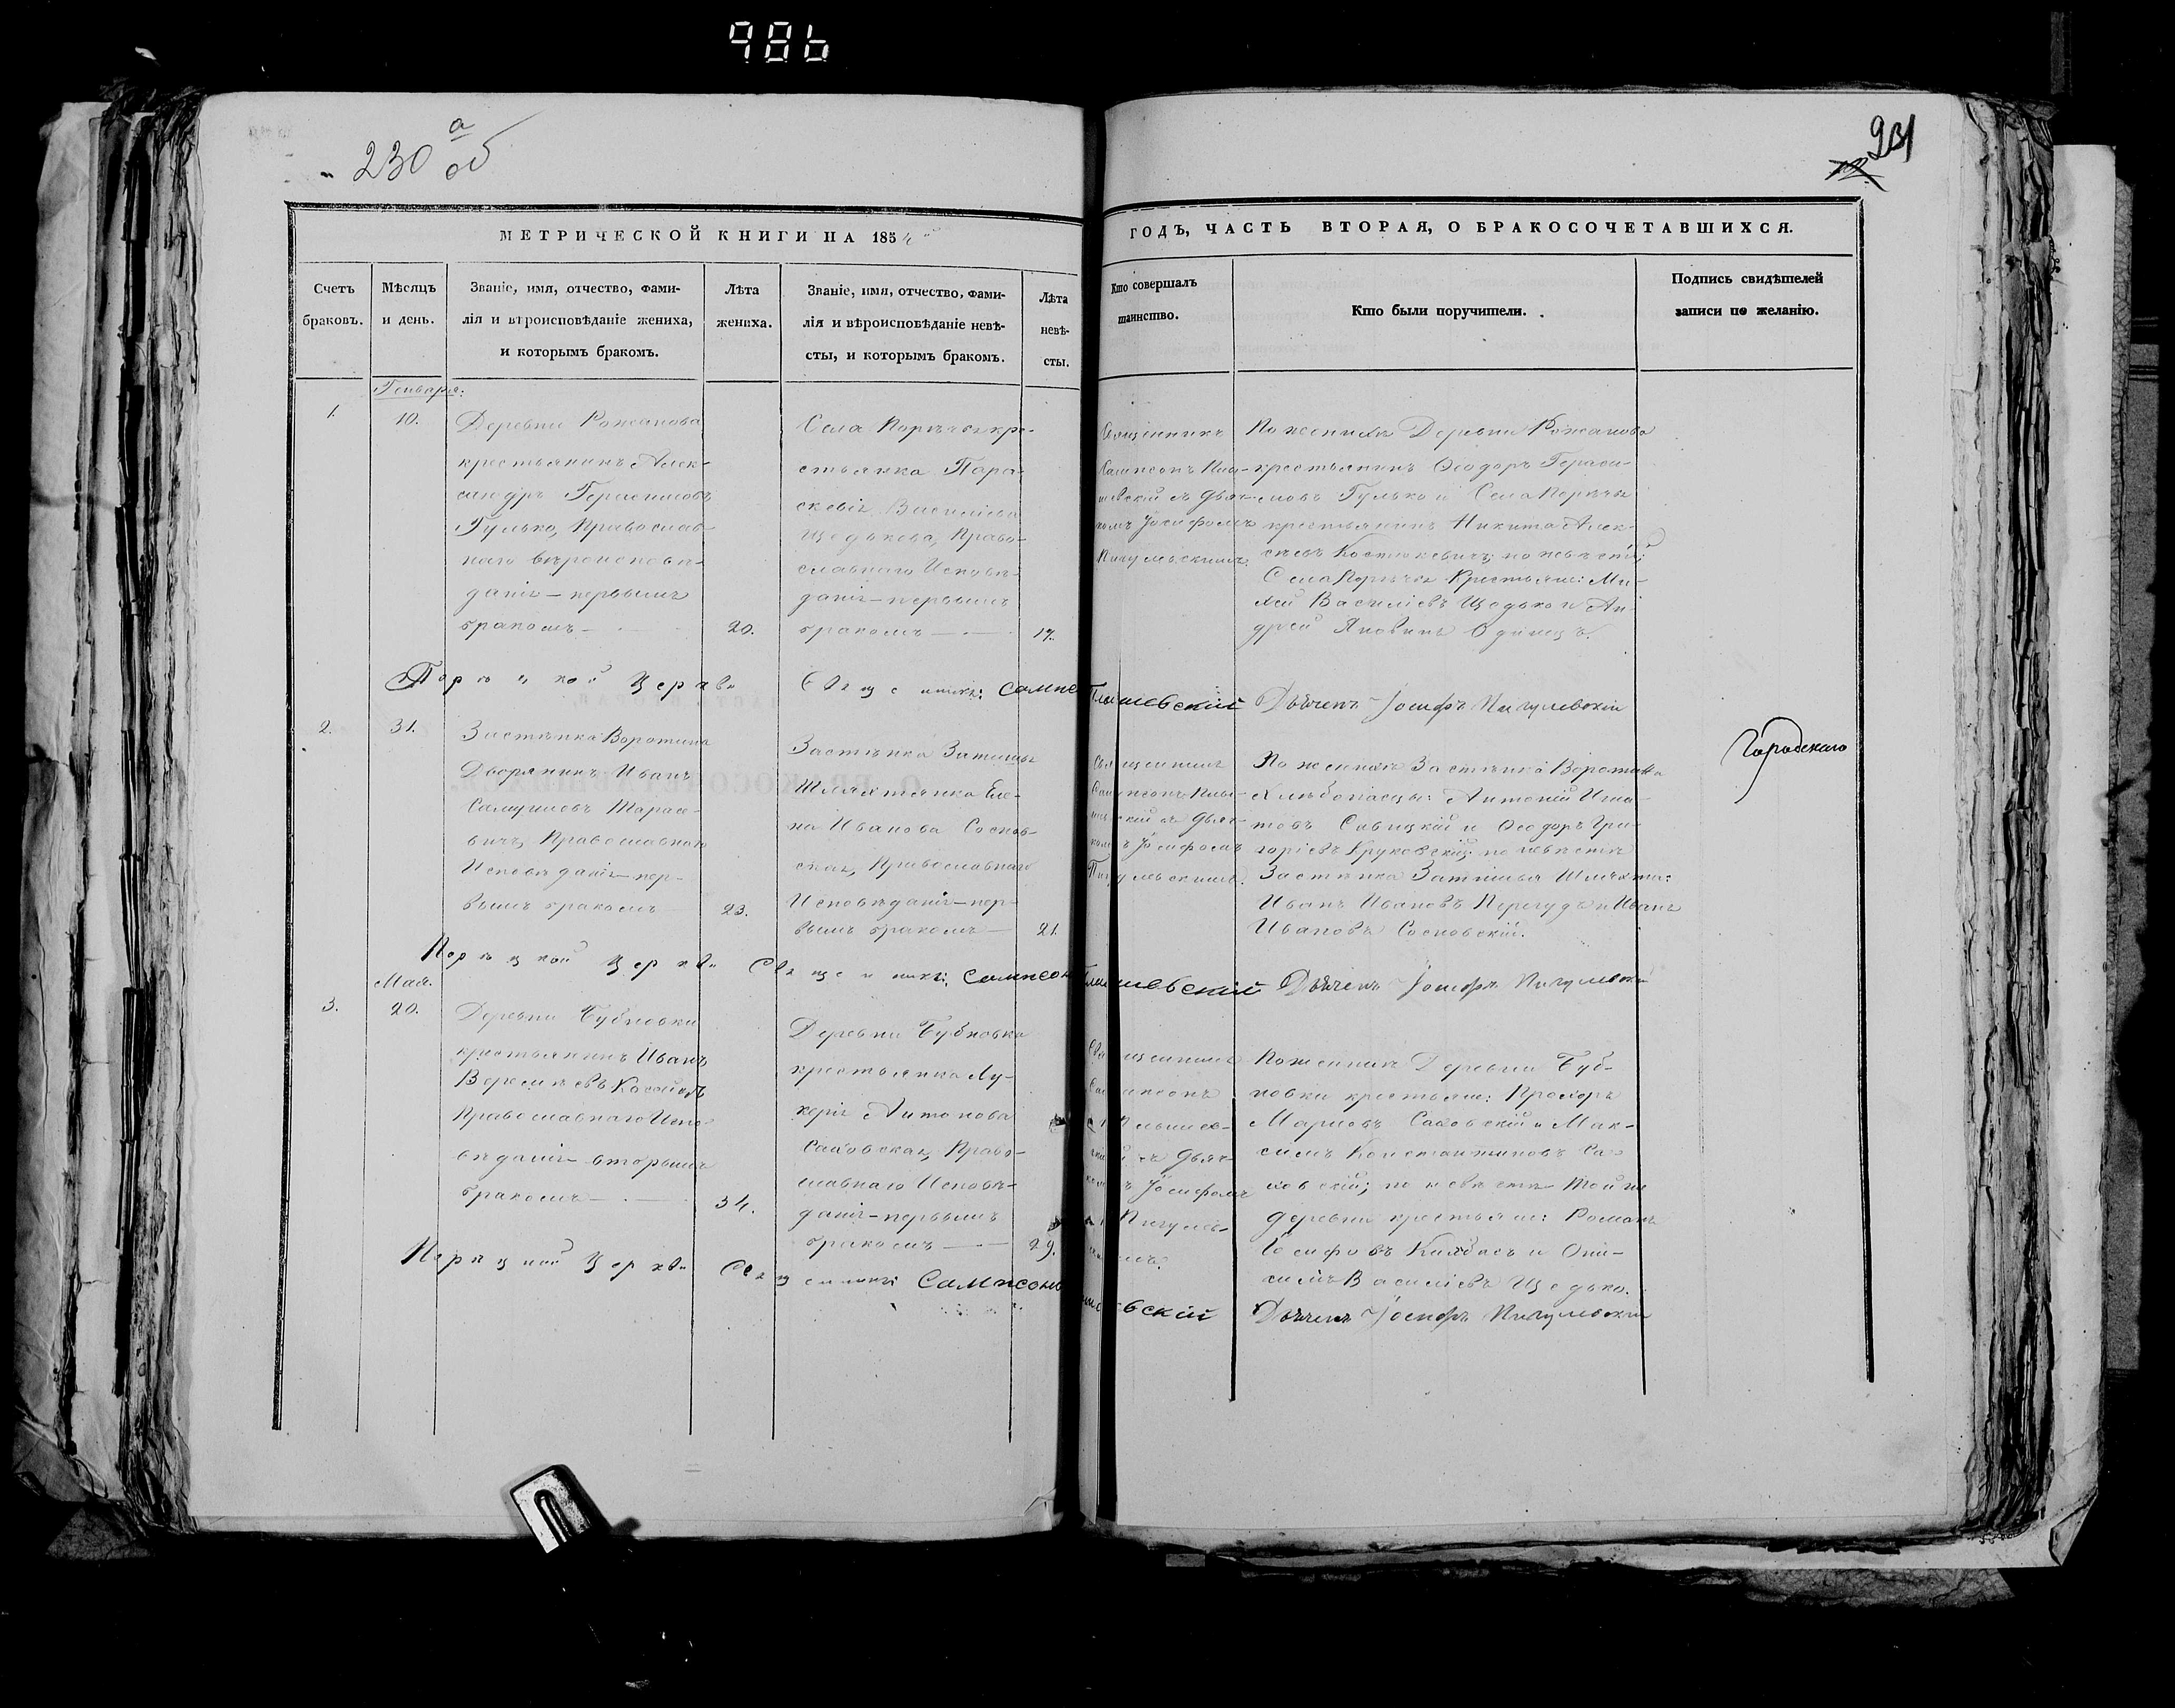 986
230 а об
231
МЕТРИЧЕСКОЙ КНИГИ НА 1854
ГОДЪ, ЧАСТЬ ВТОРАЯ, О БРАКОСОЧЕТАВШИХСЯ.
Счетъ
браковъ.
Мѣсяцъ
и день.
Званіе, имя, отчество, фами-
лія и вѣроисповѣданіе жениха,
и которымъ бракомъ.
Лѣта
жениха.
Званіе, имя, отчество, фами-
лія и вѣроисповѣданіе невѣ-
сты, и которымъ бракомъ.
Лѣта
невѣ-
сты.
Кто совершалъ
таинство.
Кто были поручители.
Подпись свидѣтелей
записи по желанію.
Генваря.
1.
10.
Деревни Рожанова
крестьянинъ Алек-
сандръ Герасимовъ
Гулько, Православ-
наго вѣроисповѣ-
данія – первымъ
бракомъ
20.
Села Порѣчья кре-
стьянка Пара-
скевія Василіева
Щедькова, Право-
славнаго Исповѣ-
данія – первымъ
бракомъ
17.
Священникъ
Сампсонъ Плы-
шевскій съ Дьяч-
комъ Іосифомъ
Пигулевскимъ.
По женихѣ Деревни Рожанова
крестьянинъ Ѳеодоръ Гераси-
мовъ Гулько и Села Порѣчья
крестьянинъ Никита Алек-
сѣевъ Костюкевичъ; по невѣстѣ;
Села Порѣчья Крестьяне: Ми-
хей Василіевъ Щедько и Ан-
дрей Яковинъ Одинецъ.
Порѣцкой Церкви Священникъ: Сампсонъ Плышевскій Дьячекъ Іосифъ Пигулевскій
2.
31.
Застѣнка Воротина
Дворянинъ Иванъ
Самуиловъ Тарасе-
вичъ, Православнаго
Исповѣданія – пер-
вымъ бракомъ
23.
Застѣнка Затишья
Шляхтянка Еле-
на Иванова Соснов-
ская, Православнаго
Исповѣданія – пер-
вымъ бракомъ
21.
Священникъ
Сампсонъ Плы-
шевскій съ Дьяч-
комъ Іосифомъ
Пигулевскимъ.
По женихѣ Застѣнка Воротина
Хлѣбопасцы: Антоній Игна-
товъ Савицкій и Ѳеодоръ Гри-
горіевъ Круковскій; по невѣстѣ
Застѣнка Затишья Шляхта:
Иванъ Ивановъ Перегудъ и Иванъ
Ивановъ Сосновскій.
Городскаго
Порѣцкой Церкви Священникъ: Сампсонъ Плышевскій Дьячекъ Іосифъ Пигулевскій
Мая.
3.
20.
Деревни Бубновки
крестьянинъ Иванъ
Веремѣевъ
Православнаго Испо-
вѣданія – вторымъ
бракомъ
34.
Деревни Бубновки
крестьянка Лу-
керія Антонова
Саховская, Право-
славнаго Исповѣ-
данія – первымъ
бракомъ
29.
Священникъ
Сампсонъ
Плышев-
скій съ Дьяч-
комъ Іосифомъ
Пигулев-
скимъ.
По женихѣ Деревни Буб-
новки крестьяне: Прохоръ
Марковъ Саховскій и Мак-
симъ Константиновъ Са-
ховскій; по невѣстѣ – той же
деревни крестьяне: Романъ
Іосифовъ и Они-
симъ Василіевъ Щедько.
Порѣцкой Церкви Священникъ: Сампсонъ Плышевскій Дьячекъ Іосифъ Пигулевскій